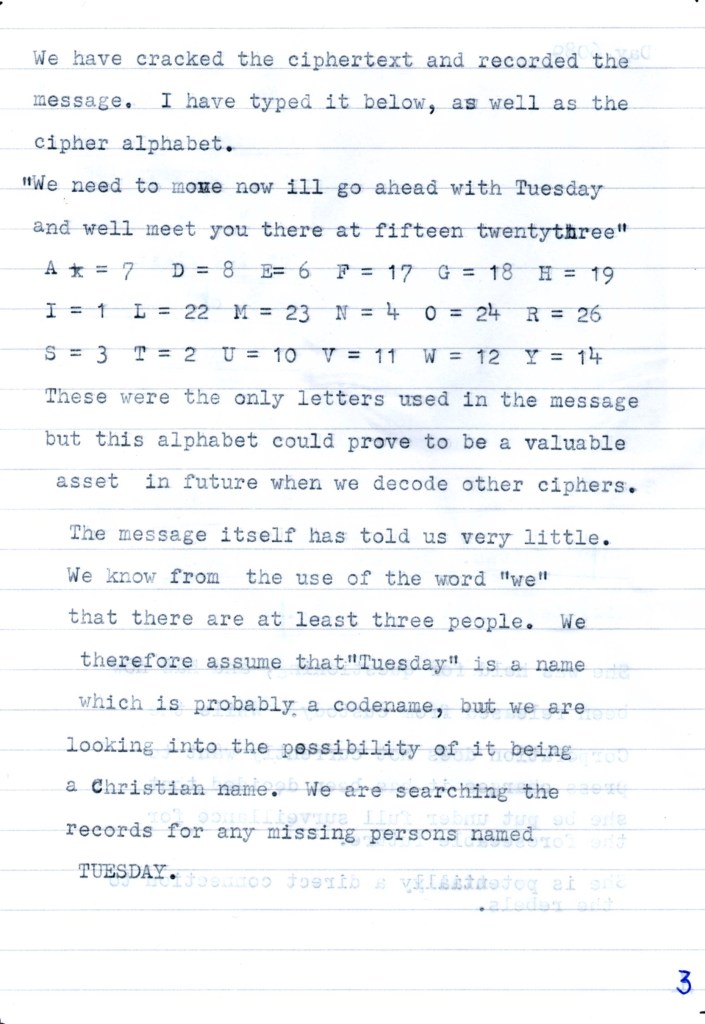 We have cracked the ciphertext and recorded the
message. I have typed it below, as well as the
cipher alphabet.
"We need to move now ill go ahead with Tuesday
and well meet you there at fifteen twentythree"
A = 7 D = 8 E= 6 F = 17 G = 18 H = 19
I = 1 L = 22 M = 23 N = 4 O = 24 R = 26
S = 3 T = 2 U = 10 V = 11 W = 12 Y = 14
These were the only letters used in the message
but this alphabet could prove to be a valuable
asset in future when we decode other ciphers.
The message itself has told us very little.
We know from the use of the word "we"
that there are at least three people. We
therefore assume that"Tuesday" is a name
which is probably a codename, but we are
looking into the possibility of it being
a Christian name. We are searching the
records for any missing persons named
TUESDAY.
3